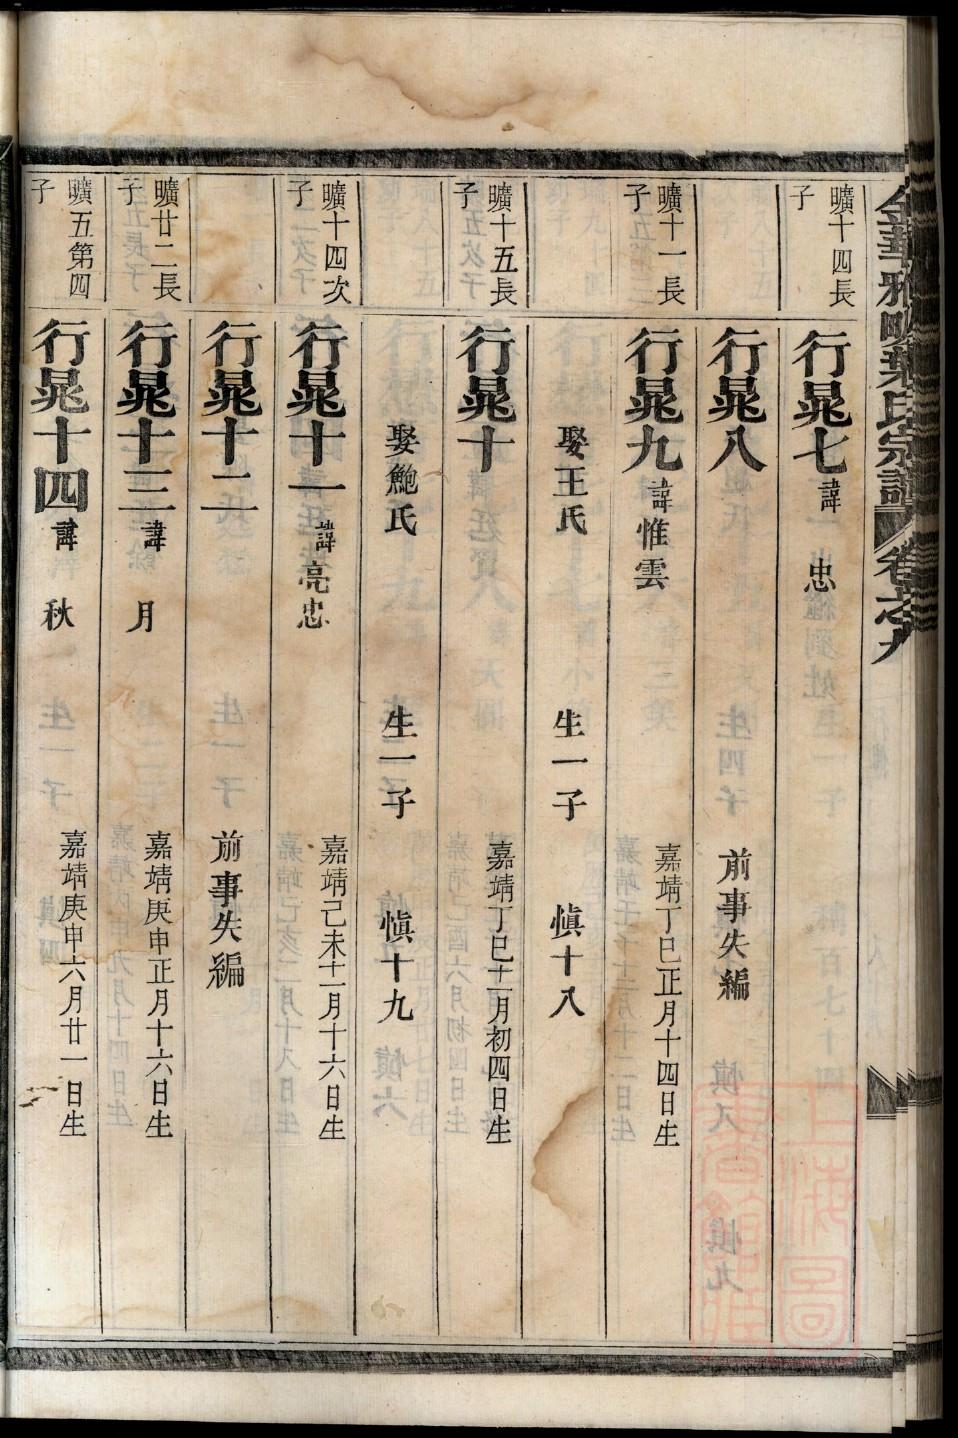 曠十四長子
行晁七諱忠
行晁八
前事失編
曠十一長子
行晁九諱惟雲
嘉靖丁巳正月十四日生
娶王氏 生一子 愼十八
曠十五長子
行晁十
嘉靖丁巳十一月初四日生
娶鮑氏 生一子 愼十九
曠十四次子
行晁十一諱亮忠
嘉靖己未十一月十六日生
行晁十二
前事失編
曠廿二長子
行晁十三諱月
嘉靖庚申正月十六日生
曠五第四子
行晁十四諱秋
嘉靖庚申六月廿一日生